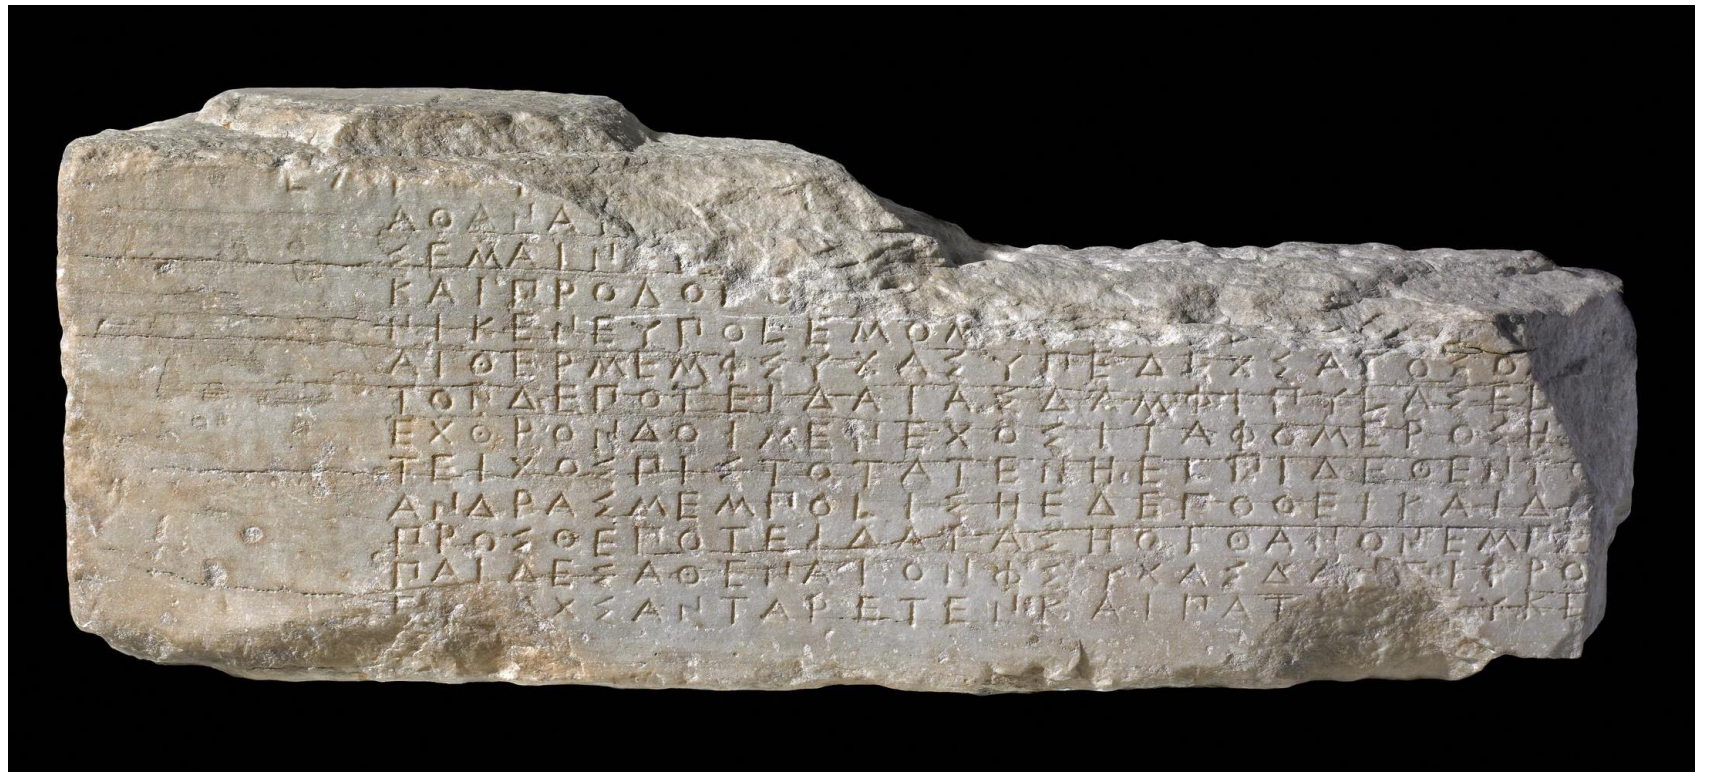 ΑΘΑΝΑ
ΣΕΜΑΙΝ
ΚΑΙΠΡΟΓΟΝΟ
ΝΙΚΕΝΕΥΠΟΛΕΜΟΜ
ΑΙΘΕΡΜΕΜΦΣΥΧΑΣΥΠΕΔΕΧΣΑΤΟΣΟ
ΤΟΝΔΕΠΟΤΕΙΔΑΙΑΣΔΑΜΦΙΠΥΛΑΣΕΛ
ΕΧΘΡΟΝΔΟΙΜΕΝΕΧΟΣΙΤΑΦΟΜΕΡΟΣΗ
ΤΕΙΧΟΣΠΙΣΤΟΤΑΤΕΝΗΕΛΠΙΔΕΘΕΝΤΟ
ΑΝΔΡΑΣΜΕΜΠΟΛΙΣΗΕΔΕΠΟΘΕΙΚΑΙΔ
ΠΡΟΣΘΕΠΟΤΕΙΔΑΙΑΣΗΟΙΘΑΝΟΝΕΜΠΡ
ΠΑΙΔΕΣΑΘΕΝΑΙΟΝΦΣΥΧΑΣΔΑΝΤΙΡΡΟ
ΧΣΑΝΤΑΡΕΤΕΝΚΑΙΠΑΤ ΥΚΛ